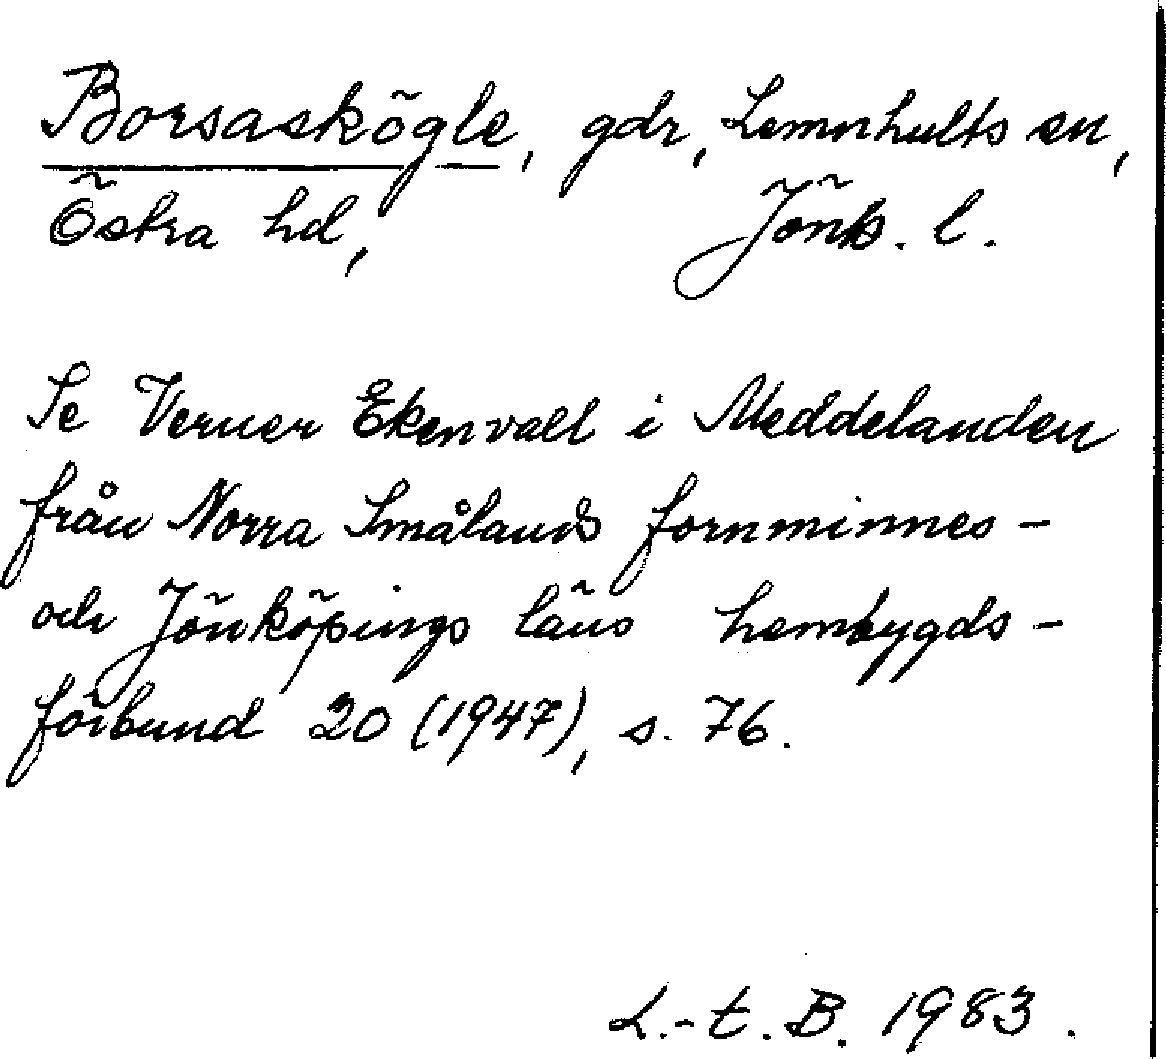 Borsaskögle, gdr, Lemnhults sn,
Östra hd, Jönk. l.
Se Verner Ekenvall i Meddelanden
från Norra Smålands fornminnes-
och Jönköpings läns hembygds-
förbund 20 (1947), s. 76.
L.-t. B. 1983.